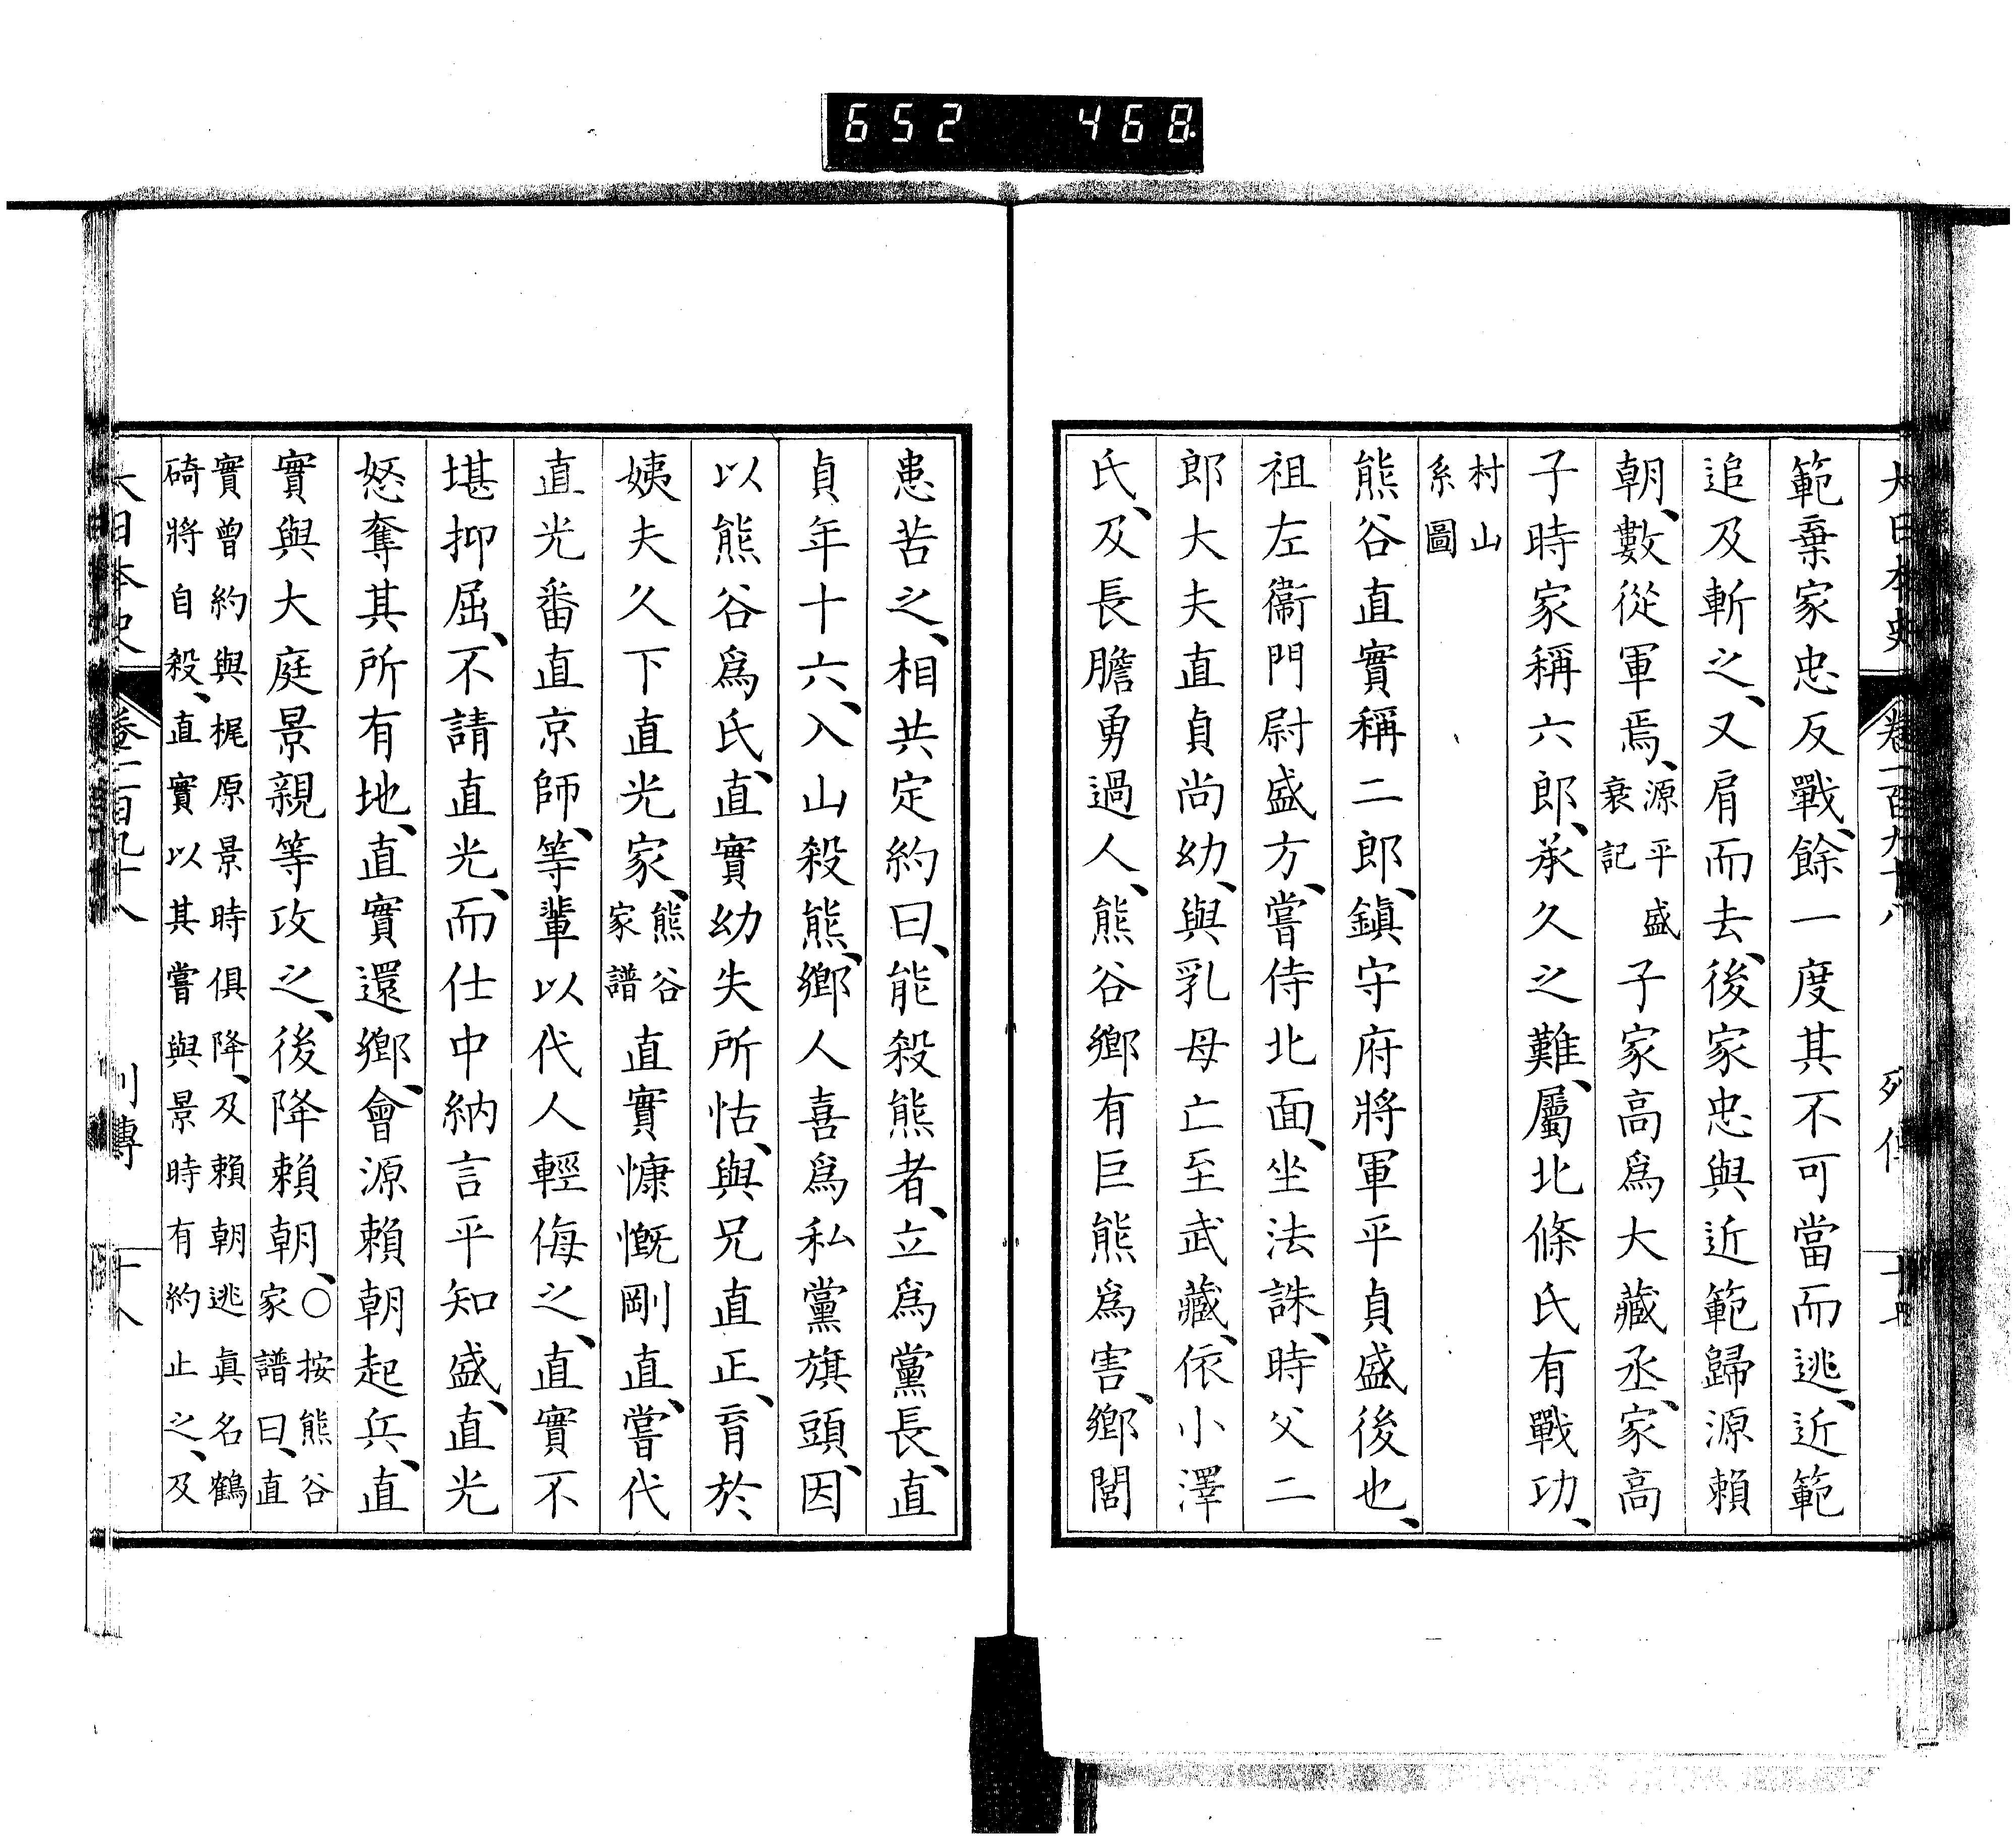 652 468
範棄家忠反戰、餘一度其不可當而逃、近範
追及斬之、又肩而去、後家忠與近範歸源賴
朝、數從軍焉、源平盛衰記子家高爲大藏丞、家高
子時家稱六郎、承久之難、屬北條氏有戰功、
村山
系圖
熊谷直實稱二郎、鎭守府將軍平貞盛後也、
祖左衞門尉盛方、嘗侍北面、坐法誅、時父二
郎大夫直貞尚幼、與乳母亡至武藏、依小澤
氏、及長膽勇過人、熊谷鄉有巨熊爲害、鄉閭
患苦之、相共定約曰、能殺熊者、立爲黨長、直
貞年十六、入山殺熊、鄉人喜爲私黨旗頭、因
以熊谷爲氏、直實幼失所怙、與兄直正、育於
姨夫久下直光家、熊谷家譜直實慷慨剛直、嘗代
直光番直京師、等輩以代人輕侮之、直實不
堪抑屈、不請直光、而仕中納言平知盛、直光
怒奪其所有地、直實還鄉、會源賴朝起兵、直
實與大庭景親等攻之、後降賴朝、○按熊谷家譜曰、直
實曾約與梶原景時俱降、及賴朝逃眞名鶴
碕將自殺、直實以其嘗與景時有約止之、及
大日本史 卷一百九十八 列傳 十八